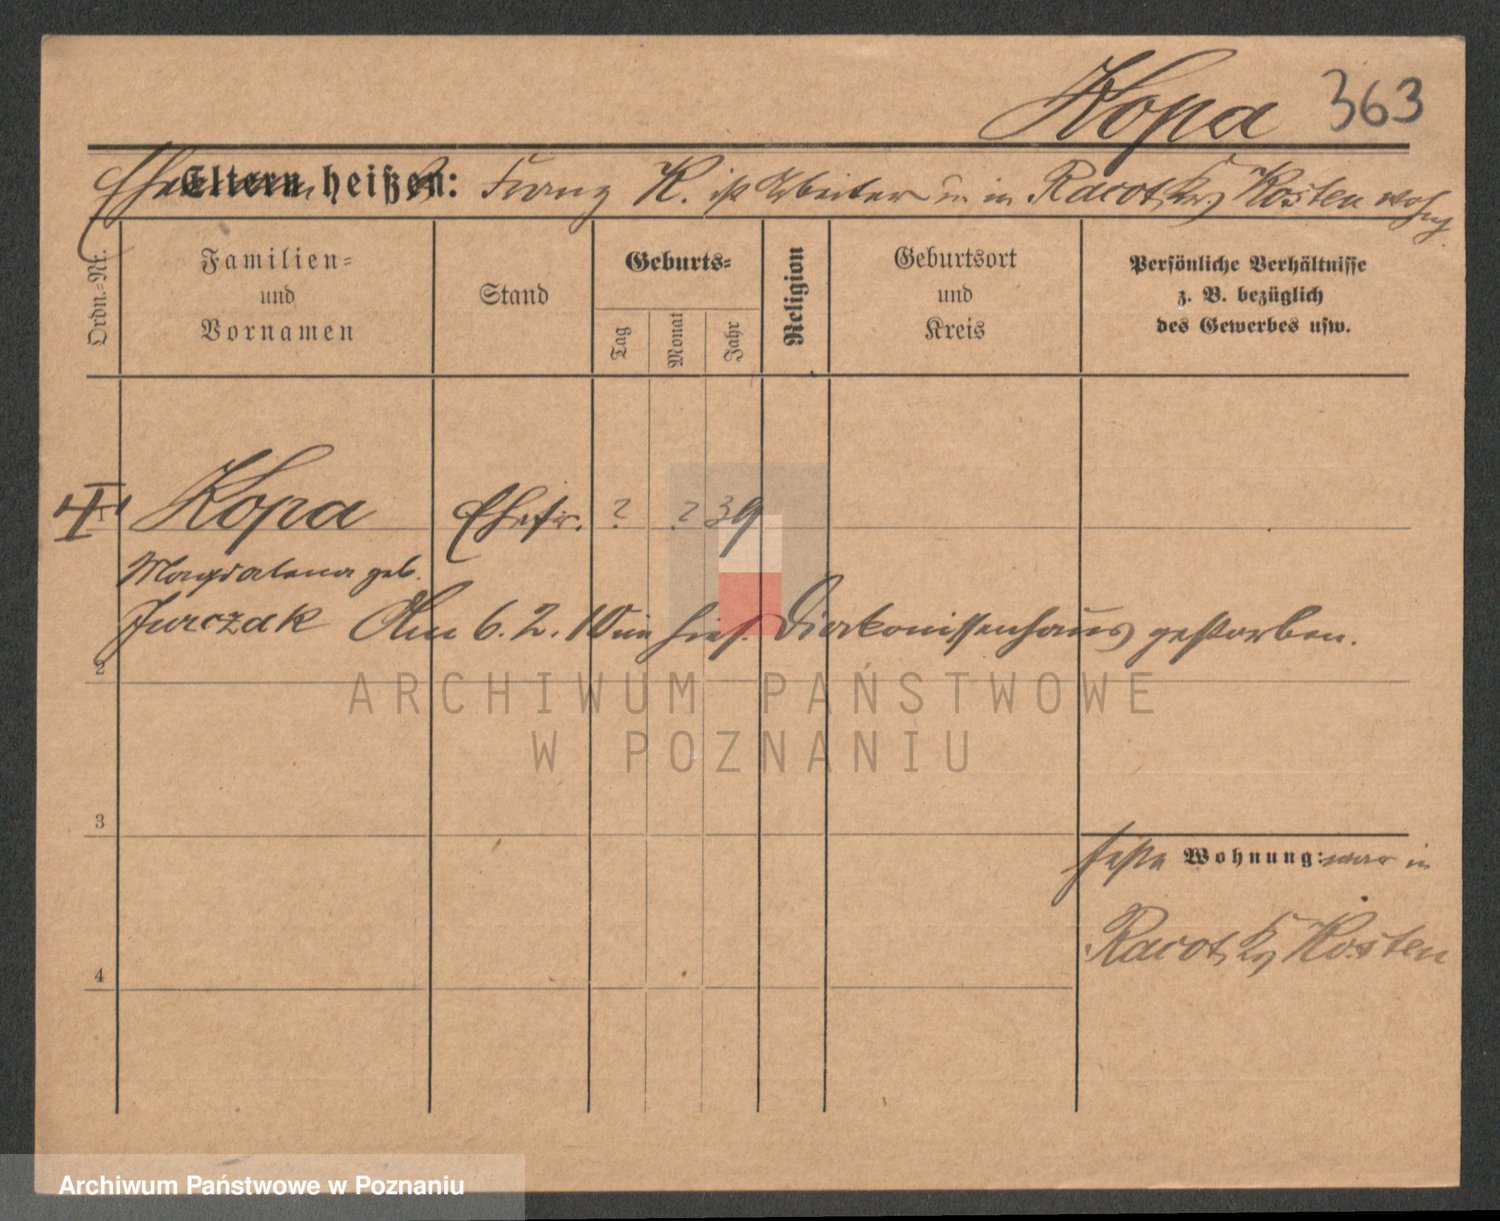 Kopa 363
Eltern heißen: Franz K. ist Arbeiter u. in Racot, Krs Kosten wohnh.
Ordn.-Nr.
Familien-
und
Vornamen
Stand
Geburts-
Tag
Monat
Jahr
Religion
Geburtsort
und
Kreis
Persönliche Verhältnisse
z. B. bezüglich
des Gewerbes usw.
1 Kopa Ehefr. ? ? 39
Magdalena geb.
Jurczak Am 6. 2. 10 im hies. Diakonissenhaus gestorben.
2
ARCHIWUM PAŃSTWOWE
W POZNANIU
3
feste Wohnung: war in
Racot, Ks Kosten
4
Archiwum Państwowe w Poznaniu